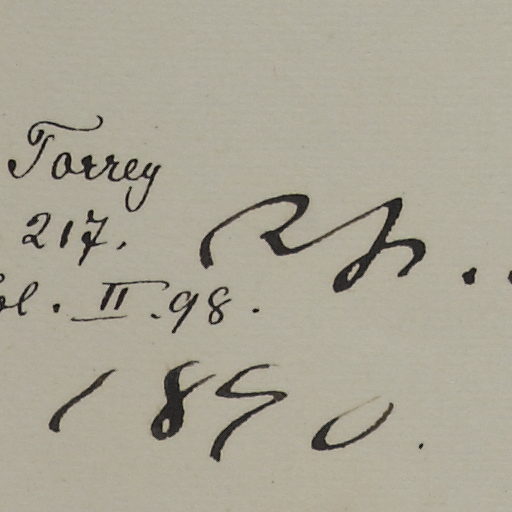 Torrey
217.
ol. II. 98.
1890.